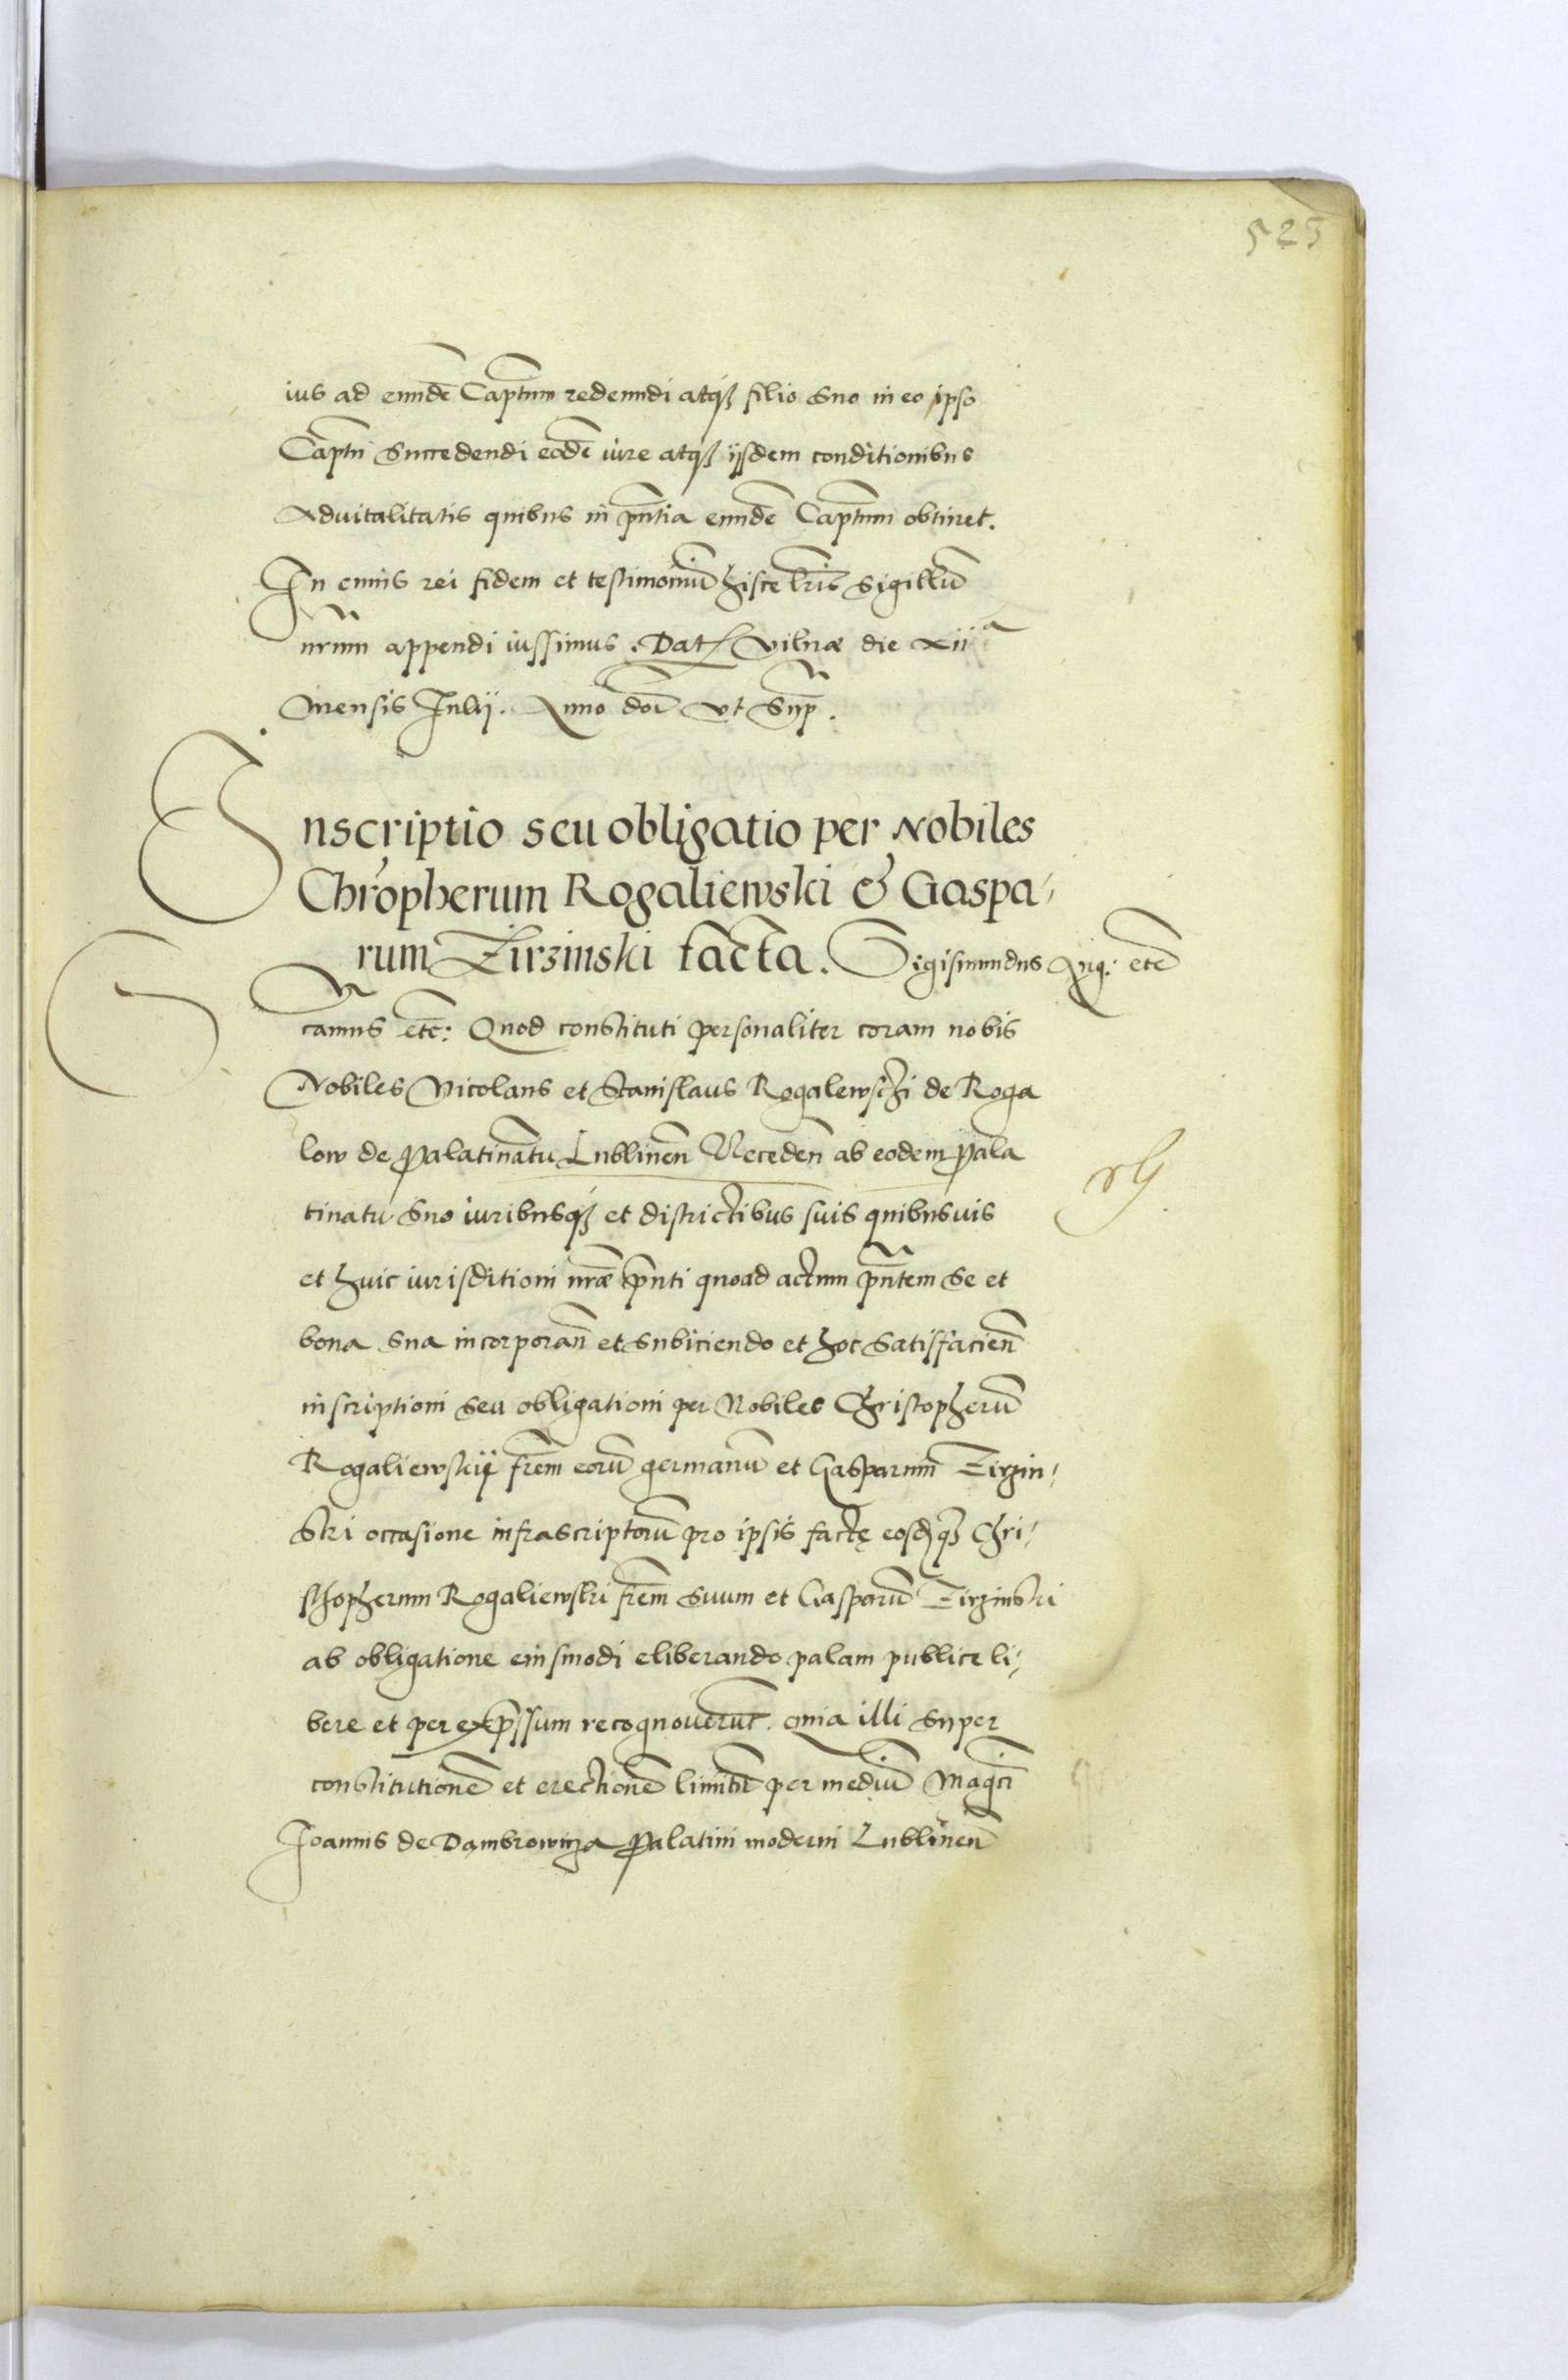 525
ius ad eundē Captum redeundi atq₃ filio suo in eo ipso
Captu succedendi eodē iure atq₃ ijsdem conditionibus
Advitalitatis quibus in pn̄tia eundē Captum obtinet.
In cuius rei fidem et testimoniū hisce lr̄is Sigillū
nrum appendi iussimus. Dat Vilnæ die xiiᵃ
Mensis Iulij. Anno dnī vt Sup̄.
Inscriptio seu obligatio per Nobiles
Chrōpherum Rogaliewski & Gaspa-
rum Zirzinski facta. Sigismundus Aug: etc̄
camus etc̄: Quod constituti personaliter coram nobis
Nobiles Nicolaus et Stanislaus Rogalewschi de Roga
low de Palatinatu Lublineñ Receden̄ ab eodem Pala
tinatu suo iuribusq₃ et districtibus suis quibusuis
et huic iurisditioni nræ pn̄ti quoad actum pn̄tem se et
bona sua incorporan̄ et subiciendo et hoc satisfacien̄
inscriptioni seu obligationi per Nobiles Christopherū
Rogaliewskij frēm eorū germanū et Gasparum Zirzin-
ski occasione infrascriptorū pro ipsis factę eosdq₃ Chri-
sthopherum Rogaliewski frēm suum et Gasparū Zirzinski
ab obligatione eiusmodi eliberando palam publice li-
bere et per exp̄ssum recognouerūt. quia illi super
constitutionē et erectionē limitū per mediū Mag̃ci
Joannis de Dambrowicza Palatini moderni Lublinen̄